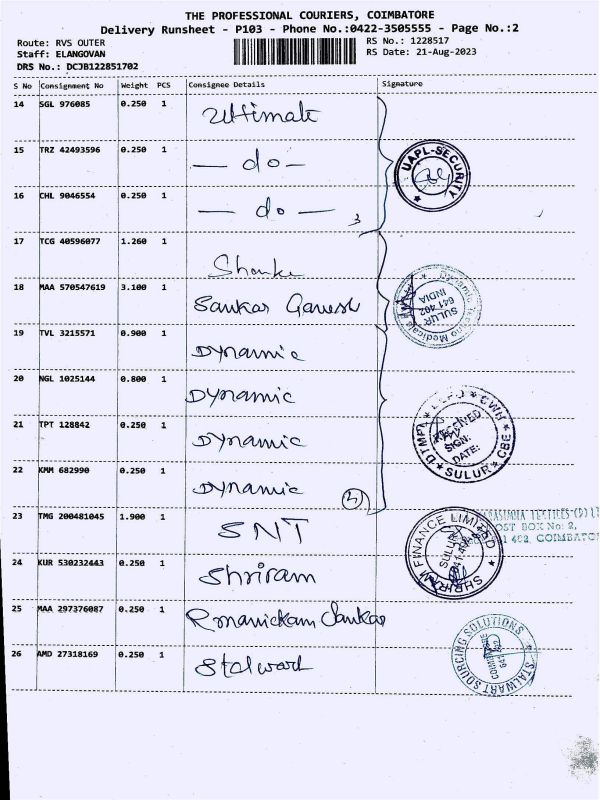 THE PROFESSIONAL COURIERS, COIMBATORE
Delivery Runsheet - P103 - Phone No.:0422-3505555 - Page No.:2
Route: RVS OUTER
Staff: ELANGOVAN
DRS No.: DCJB122851702
RS No.: 1228517
RS Date: 21-Aug-2023
S No Consignment No Weight PCS Consignee Details Signature
14 SGL 976085 0.250 1 Ultimate
15 TRZ 42493596 0.250 1 — do —
UAPL-SECURITY
16 CHL 9046554 0.250 1 — do — 3
17 TCG 40596077 1.260 1
18 MAA 570547619 3.100 1 Sankar Ganesh
SULUR
641 402
INDIA
19 TVL 3215571 0.900 1 Dynamic
20 NGL 1025144 0.800 1 Dynamic
21 TPT 128842 0.250 1 Dynamic
RECEIVED
SIGN:
DATE:
SULUR CBE
22 KMM 682990 0.250 1 Dynamic
23 TMG 200481045 1.900 1 SNT
POST BOX No: 2,
SHRIRAM FINANCE LIMITED
SULUR
24 KUR 530232443 0.250 1 Shriram
25 MAA 297376087 0.250 1 R manickam Sankar
26 AMD 27318169 0.250 1 Stalwart
STALWART SOURCING SOLUTIONS